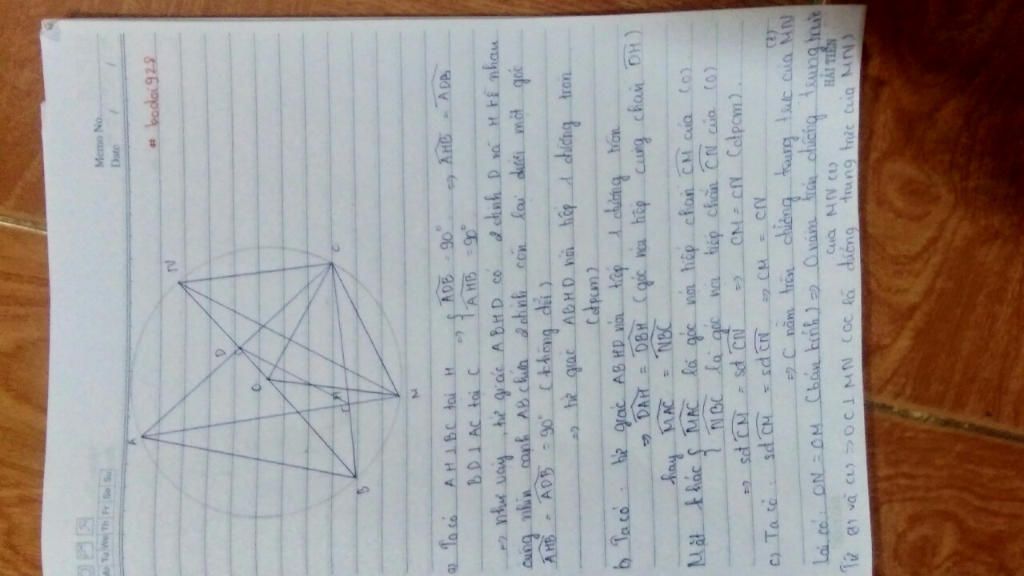 Mo Tu We Th Fr Sa Su
Memo No.
Date / /
# baodai928
A
N
D
O
C
H
B
M
a) Ta có AH⊥BC tại H ⇒ { ADB = 90°
BD⊥AC tại C { AHB = 90° ⇒ AHB = ADB
⇒ như vậy, tứ giác ABHD có 2 đỉnh D và H kề nhau
cùng nhìn cạnh AB chứa 2 đỉnh còn lại dưới một góc
AHB = ADB = 90° (không đổi)
⇒ tứ giác ABHD nội tiếp 1 đường tròn
(đpcm)
b) Ta có: tứ giác ABHD nội tiếp 1 đường tròn
⇒ DAH = DBH (góc nội tiếp cùng chắn DH)
hay MAC = NBC
Mặt khác { MAC là góc nội tiếp chắn CM của (O)
{ NBC là góc nội tiếp chắn CN của (O)
⇒ sđ CM = sđ CN ⇒ CM = CN (đpcm).
c) Ta có: sđ CM = sđ CN ⇒ CM = CN
⇒ C nằm trên đường trung trực của MN (2)
Lại có: ON = OM (bán kính) ⇒ O nằm trên đường trung trực
của MN (1)
HẢI TIẾN
Từ (2) và (1) ⇒ OC⊥MN (OC là đường trung trực của MN)